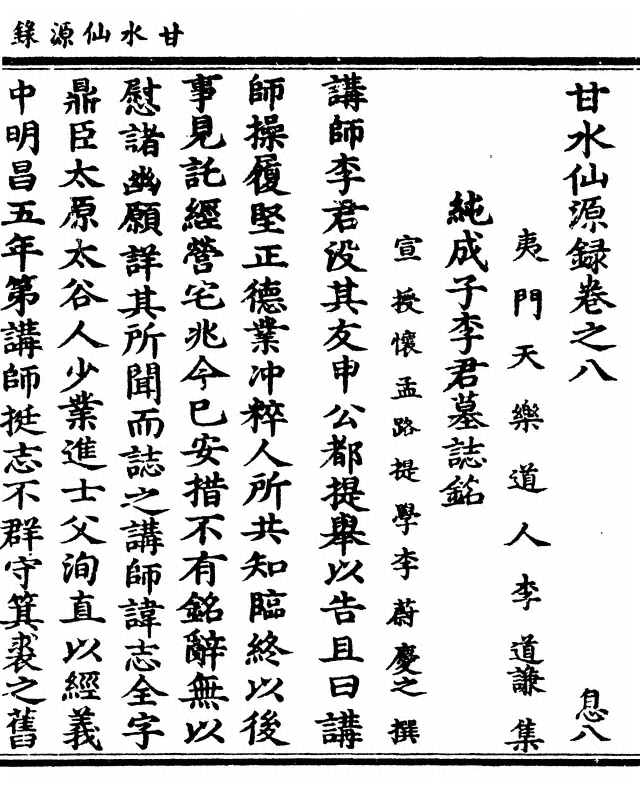 甘水仙源錄
甘水仙源録卷之八
息八
夷門天樂道人李道謙集
純成子李君墓誌銘
宣授懷孟路提學李蔚慶之撰
講師李君没其友申公都提舉以告且曰講
師操履堅正德業冲粹人所共知臨終以後
事見託經營宅兆今已安措不有銘辭無以
慰諸幽願詳其所聞而誌之講師諱志全字
鼎臣太原太谷人少業進士父洵直以經義
中明昌五年第講師挺志不群守箕裘之舊